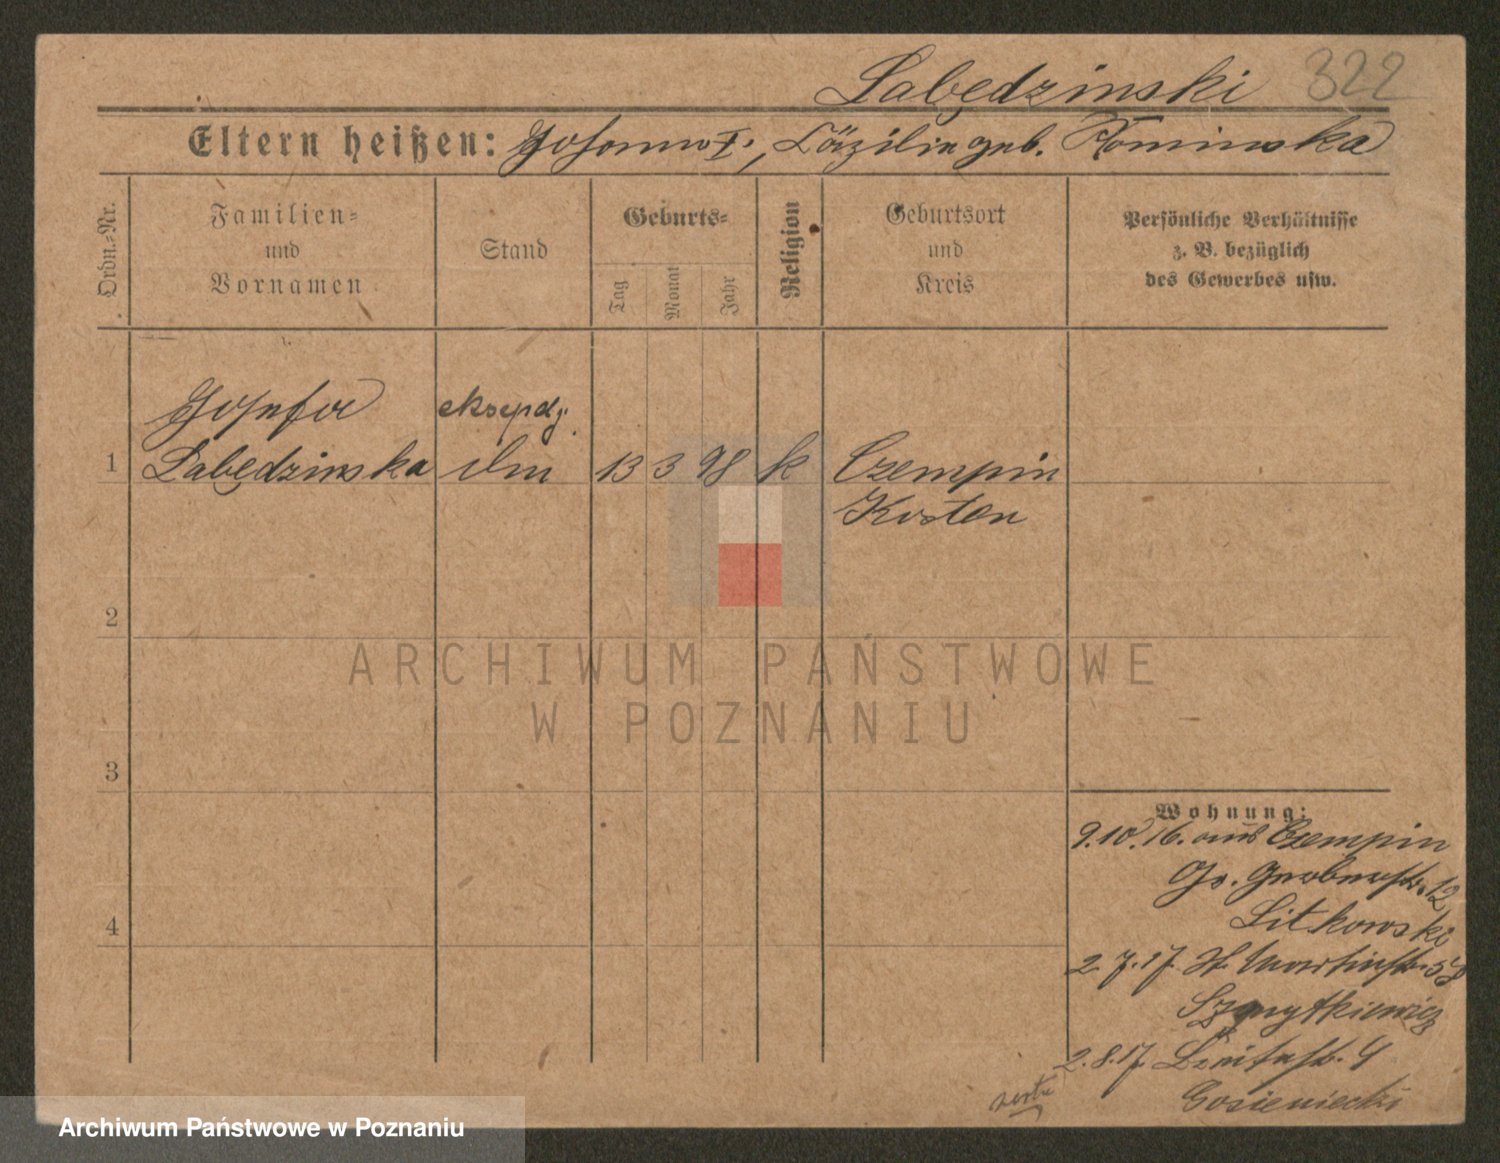 Łabędzinski 322
Eltern heißen: Johann I., Cäzilie geb. Kominska
Ordn.-Nr.
Familien-
und
Vornamen
Stand
Geburts-
Tag
Monat
Jahr
Religion
Geburtsort
und
Kreis
Persönliche Verhältnisse
z. B. bezüglich
des Gewerbes usw.
Josefa eksepdj.
1 Łabędzinska 13 3 98 k Czempin
Kosten
2
ARCHIWUM PAŃSTWOWE
W POZNANIU
3
Wohnung:
9.10.16. aus Czempin
Gr. Gerberstr. 12
Litkowski
2.7.17. St. Martinstr. 58
4
Szmytkiewicz
2.8.17.
Gosieniecki
Archiwum Państwowe w Poznaniu